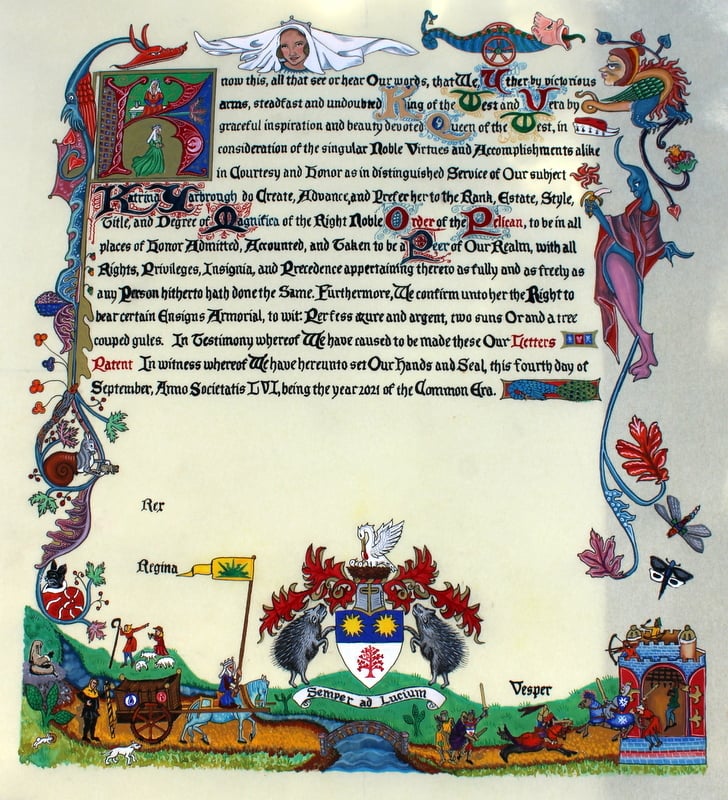 Know this, all that see or hear Our words, that We, Uther by victorious
arms, steadfast and undoubted King of the West and Vera by
graceful inspiration and beauty devoted Queen of the West, in
consideration of the singular Noble Virtues and Accomplishments alike
in Courtesy and Honor as in distinguished Service of Our subject
Katrina Yarbrough do Create, Advance, and Prefer her to the Rank, Estate, Style,
Title, and Degree of Magnifica of the Right Noble Order of the Pelican, to be in all
places of Honor Admitted, Accounted, and Taken to be a Peer of Our Realm, with all
Rights, Privileges, Insignia, and Precedence appertaining thereto as fully and as freely as
any Person hitherto hath done the Same. Furthermore, We confirm unto her the Right to
bear certain Ensigns Armorial, to wit: Per fess azure and argent, two suns Or and a tree
couped gules. In Testimony whereof We have caused to be made these Our Letters
Patent In witness whereof We have hereunto set Our Hands and Seal, this fourth day of
September, Anno Societatis LVI, being the year 2021 of the Common Era.
Rex
Regina
Semper ad Lucium
Vesper